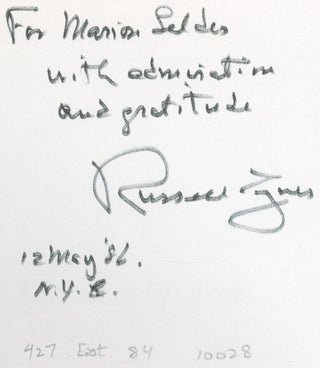 For Marian Seldes
with admiration
and gratitude
Russell Lynes
12 May '86.
N.Y.C.
427 East 84 10028